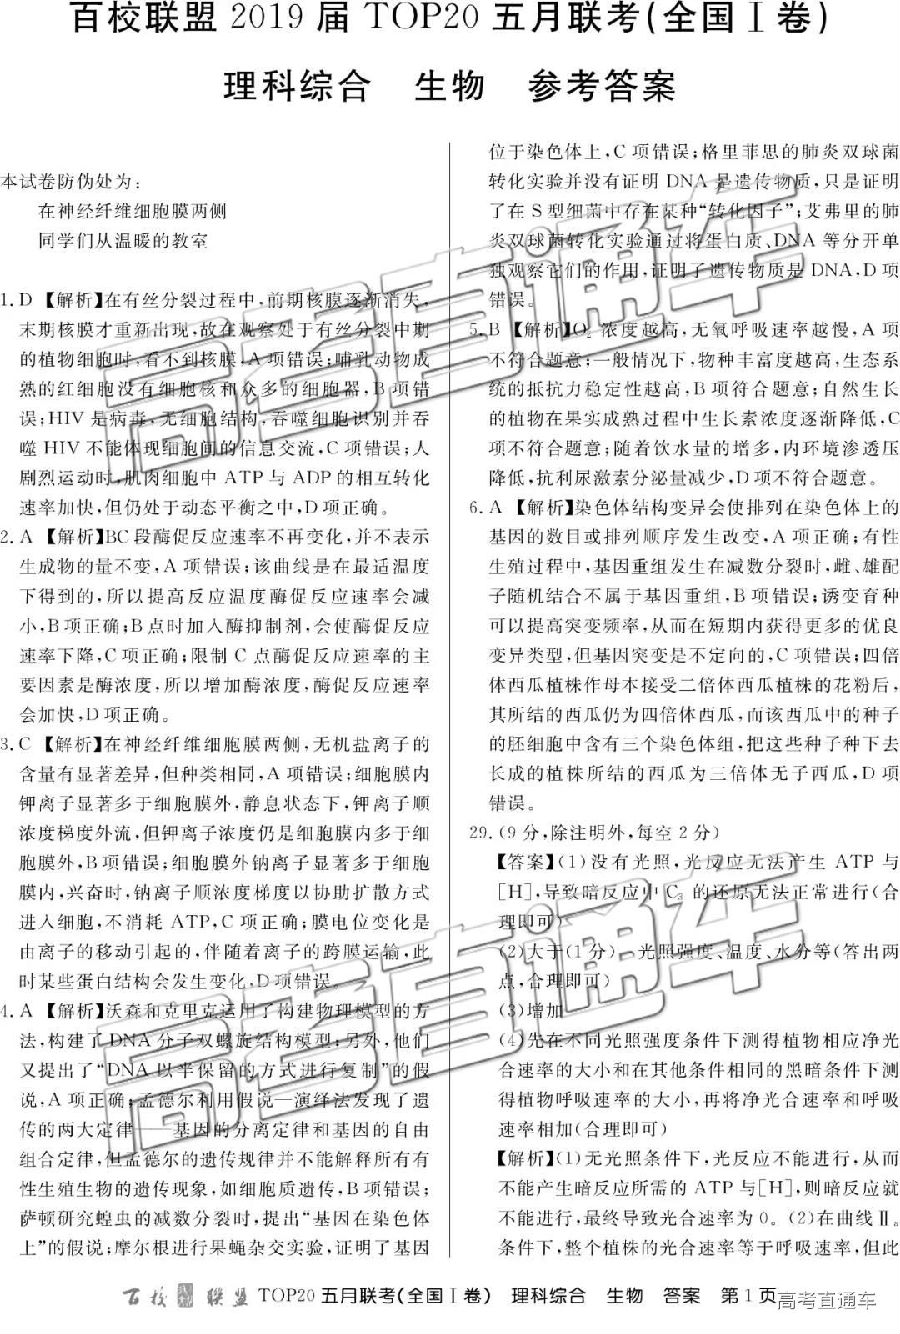 百校联盟 2019 届 TOP20 五月联考(全国Ⅰ卷)
理科综合 生物 参考答案
本试卷防伪处为:
在神经纤维细胞膜两侧
同学们从温暖的教室
1. D 【解析】在有丝分裂过程中,前期核膜逐渐消失,
末期核膜才重新出现,故在观察处于有丝分裂中期
的植物细胞时,看不到核膜,A项错误;哺乳动物成
熟的红细胞没有细胞核和众多的细胞器,B项错
误;HIV 是病毒,无细胞结构,吞噬细胞识别并吞
噬 HIV 不能体现细胞间的信息交流,C项错误;人
剧烈运动时,肌肉细胞中 ATP 与 ADP 的相互转化
速率加快,但仍处于动态平衡之中,D项正确。
2. A 【解析】BC段酶促反应速率不再变化,并不表示
生成物的量不变,A 项错误;该曲线是在最适温度
下得到的,所以提高反应温度酶促反应速率会减
小,B项正确;B点时加入酶抑制剂,会使酶促反应
速率下降,C项正确;限制 C 点酶促反应速率的主
要因素是酶浓度,所以增加酶浓度,酶促反应速率
会加快,D项正确。
3. C 【解析】在神经纤维细胞膜两侧,无机盐离子的
含量有显著差异,但种类相同,A 项错误;细胞膜内
钾离子显著多于细胞膜外,静息状态下,钾离子顺
浓度梯度外流,但钾离子浓度仍是细胞膜内多于细
胞膜外,B项错误;细胞膜外钠离子显著多于细胞
膜内,兴奋时,钠离子顺浓度梯度以协助扩散方式
进入细胞,不消耗 ATP,C 项正确;膜电位变化是
由离子的移动引起的,伴随着离子的跨膜运输,此
时某些蛋白结构会发生变化,D项错误。
4. A 【解析】沃森和克里克运用了构建物理模型的方
法,构建了 DNA 分子双螺旋结构模型;另外,他们
又提出了“DNA 以半保留的方式进行复制”的假
说,A 项正确;孟德尔利用假说—演绎法发现了遗
传的两大定律——基因的分离定律和基因的自由
组合定律,但孟德尔的遗传规律并不能解释所有有
性生殖生物的遗传现象,如细胞质遗传,B项错误;
萨顿研究蝗虫的减数分裂时,提出“基因在染色体
上”的假说;摩尔根进行果蝇杂交实验,证明了基因
位于染色体上,C 项错误;格里菲思的肺炎双球菌
转化实验并没有证明 DNA 是遗传物质,只是证明
了在 S 型细菌中存在某种“转化因子”;艾弗里的肺
炎双球菌转化实验通过将蛋白质、DNA 等分开单
独观察它们的作用,证明了遗传物质是 DNA,D 项
错误。
5. B 【解析】O₂ 浓度越高,无氧呼吸速率越慢,A 项
不符合题意;一般情况下,物种丰富度越高,生态系
统的抵抗力稳定性越高,B 项符合题意;自然生长
的植物在果实成熟过程中生长素浓度逐渐降低,C
项不符合题意;随着饮水量的增多,内环境渗透压
降低,抗利尿激素分泌量减少,D项不符合题意。
6. A 【解析】染色体结构变异会使排列在染色体上的
基因的数目或排列顺序发生改变,A 项正确;有性
生殖过程中,基因重组发生在减数分裂时,雌、雄配
子随机结合不属于基因重组,B 项错误;诱变育种
可以提高突变频率,从而在短期内获得更多的优良
变异类型,但基因突变是不定向的,C项错误;四倍
体西瓜植株作母本接受二倍体西瓜植株的花粉后,
其所结的西瓜仍为四倍体西瓜,而该西瓜中的种子
的胚细胞中含有三个染色体组,把这些种子种下去
长成的植株所结的西瓜为三倍体无子西瓜,D 项
错误。
29. (9 分,除注明外,每空 2 分)
【答案】(1)没有光照,光反应无法产生 ATP 与
[H],导致暗反应中 C₃ 的还原无法正常进行(合
理即可)
(2)大于(1 分) 光照强度、温度、水分等(答出两
点,合理即可)
(3)增加
(4)先在不同光照强度条件下测得植物相应净光
合速率的大小和在其他条件相同的黑暗条件下测
得植物呼吸速率的大小,再将净光合速率和呼吸
速率相加(合理即可)
【解析】(1)无光照条件下,光反应不能进行,从而
不能产生暗反应所需的 ATP 与[H],则暗反应就
不能进行,最终导致光合速率为 0。(2)在曲线Ⅱ。
条件下,整个植株的光合速率等于呼吸速率,但此
百校联盟 TOP20 五月联考(全国Ⅰ卷) 理科综合 生物 答案 第 1 页
高考直通车
高考直通车
高考直通车